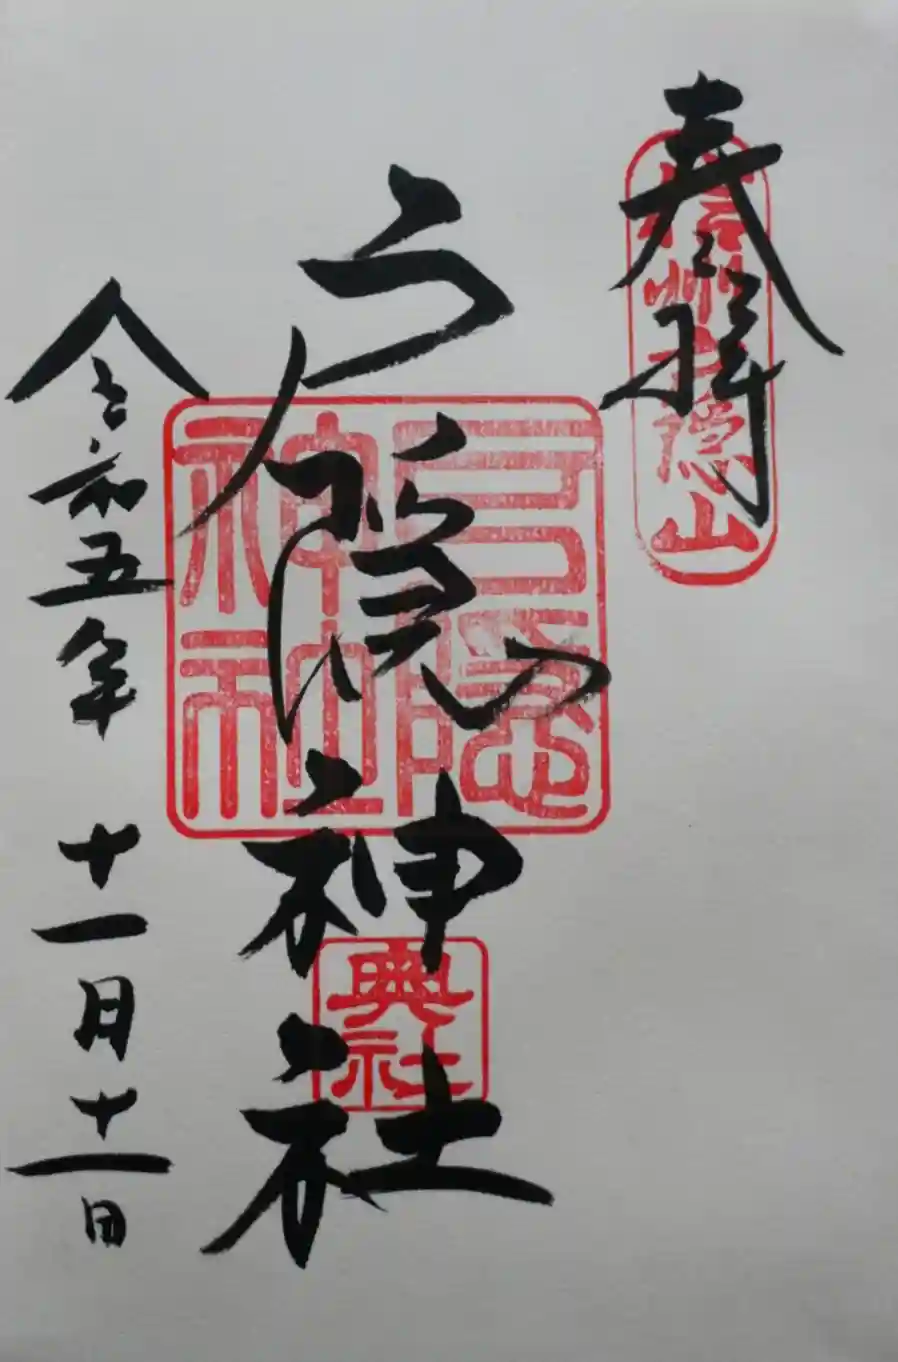 奉拝
信州戸隠山
戸隠神社
戸隠神社
奥社
令和五年 十一月十一日